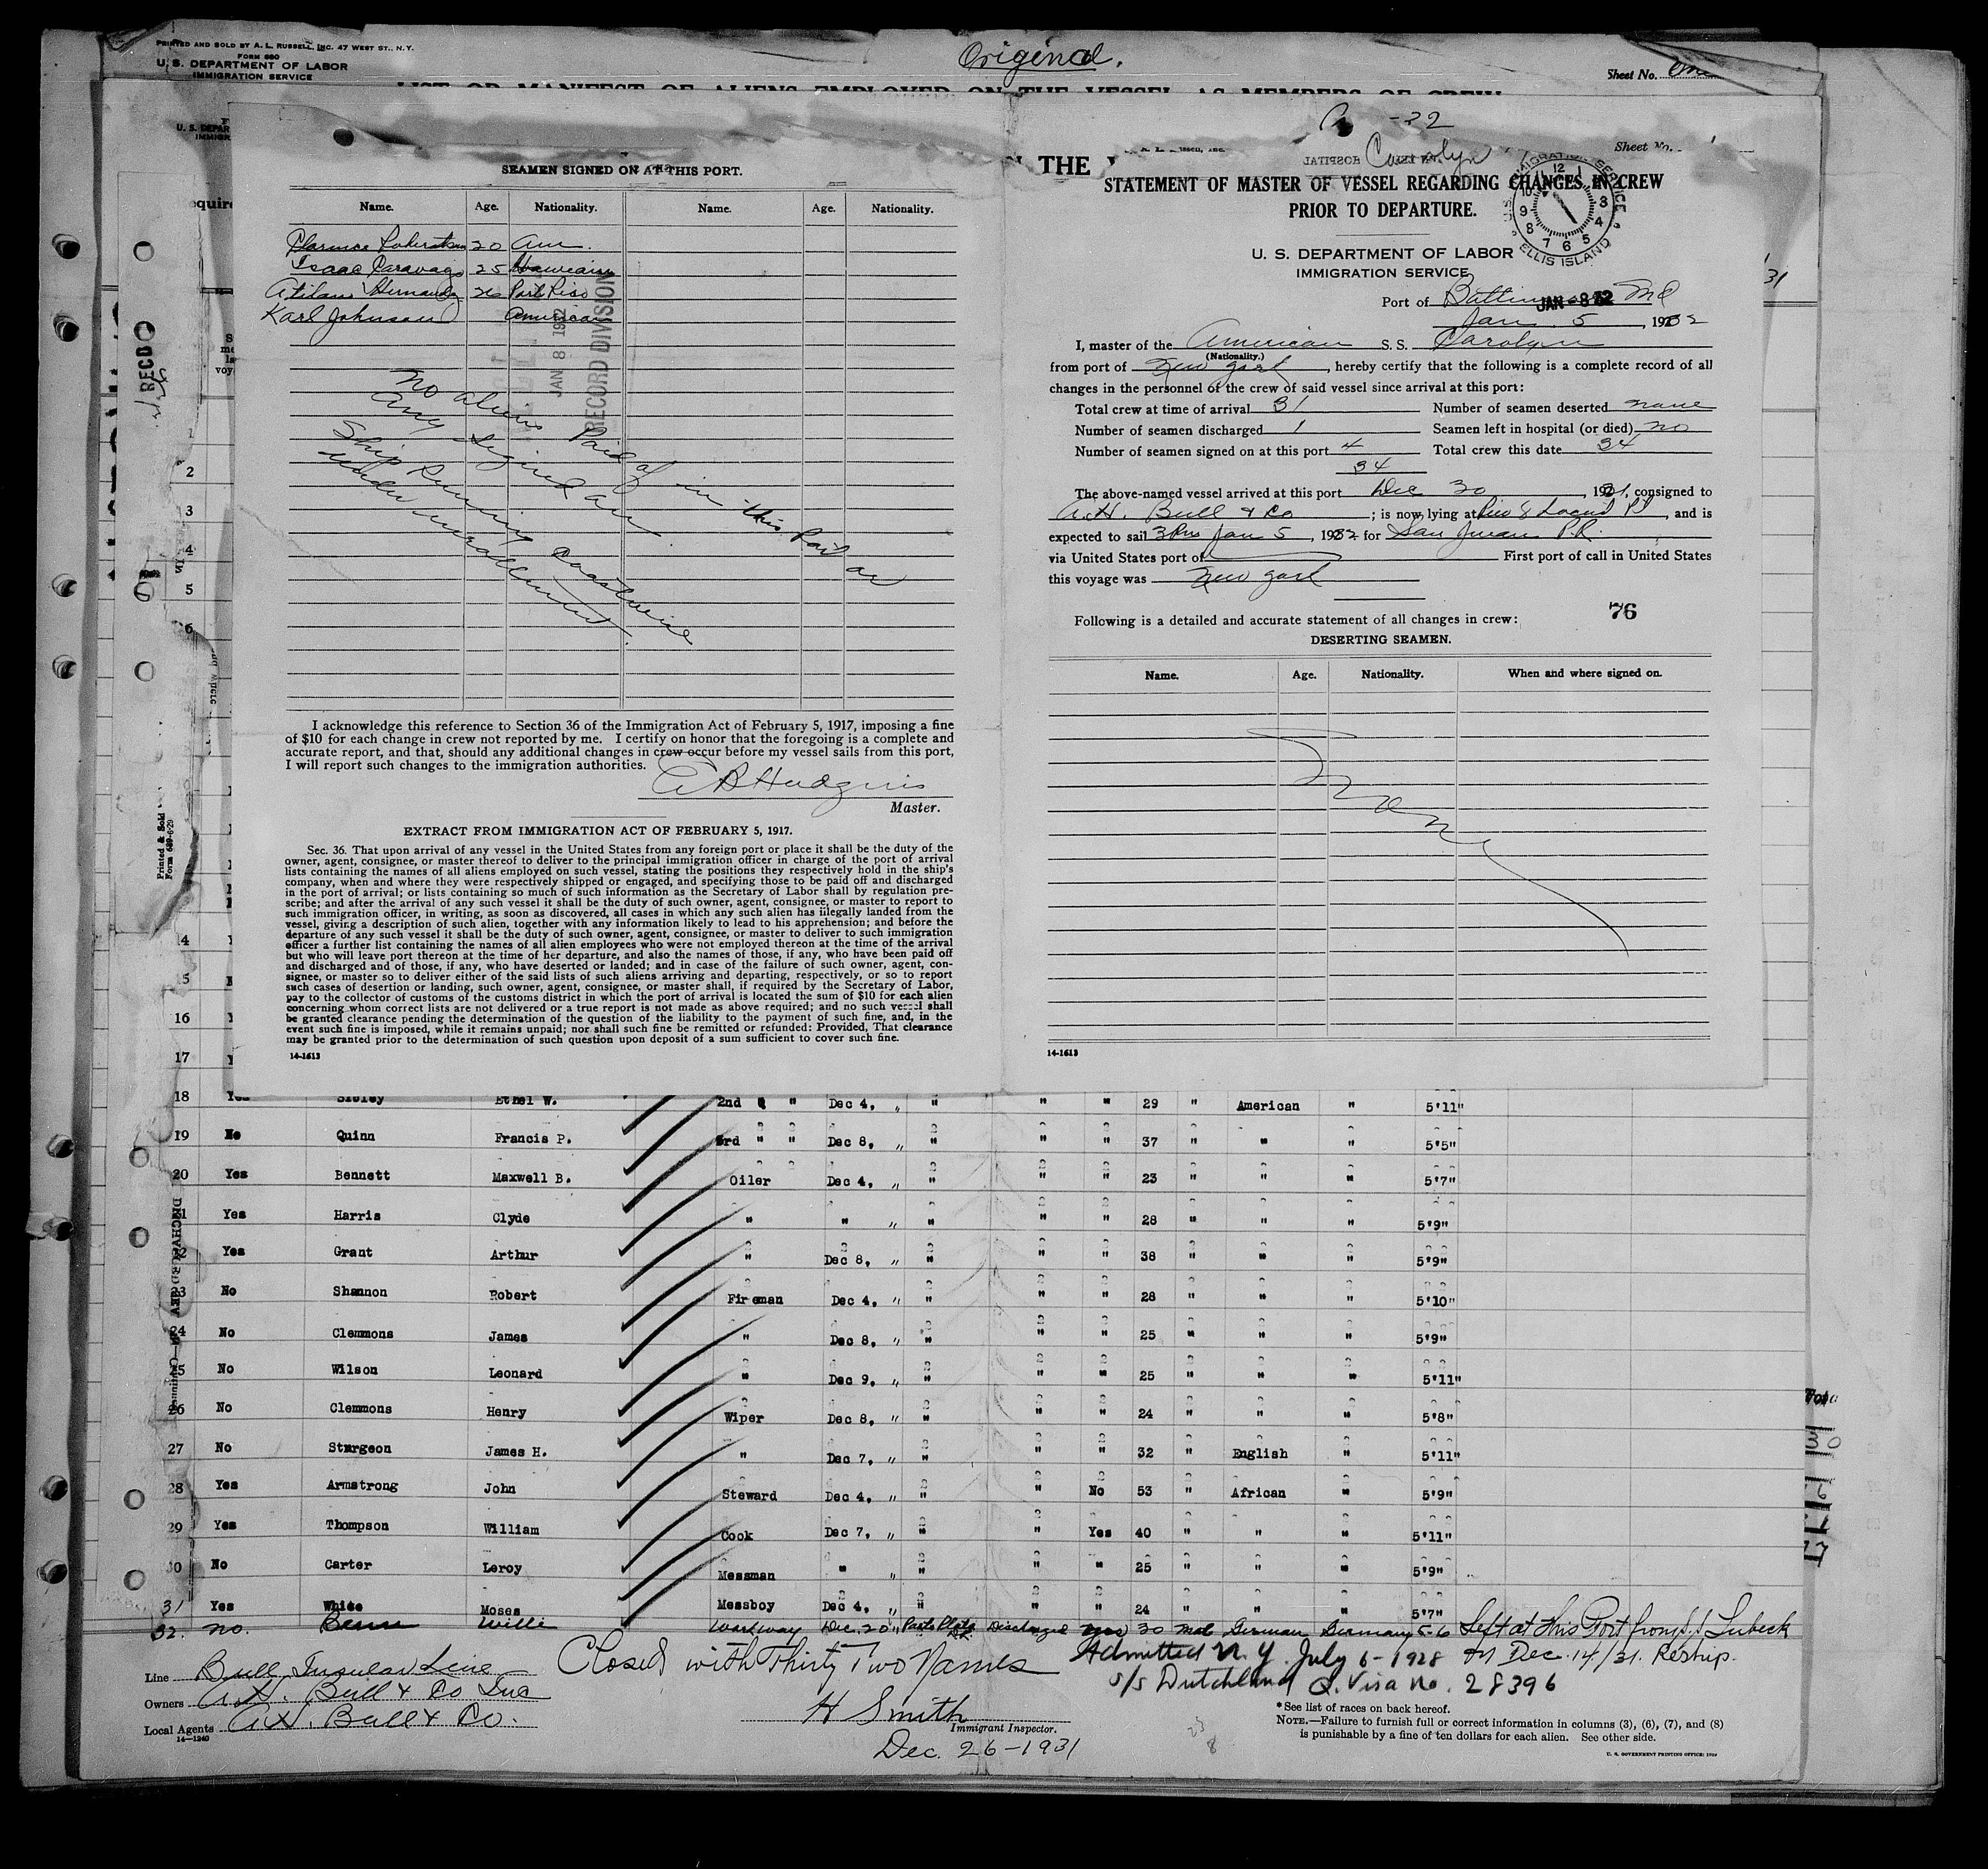 PRINTED AND SOLD BY A. L. RUSSELL, INC. 47 WEST ST., N.Y.
FORM 680
U. S. DEPARTMENT OF LABOR
IMMIGRATION SERVICE
Original.
Sheet No.
LIST OR MANIFEST OF ALIENS EMPLOYED ON THE VESSEL AS MEMBERS OF CREW
SEAMEN SIGNED ON AT THIS PORT.
Name. Age. Nationality. Name. Age. Nationality.
Clarence 20 Am.
Isaac Caravago 25 Hawaiian
Atilano Hernandez 26 Port Rico
Karl Johnson American
JAN 8 1932
RECORD DIVISION
No aliens Paid of in this Port or
any signed on.
Ship Running Coastwise
under
I acknowledge this reference to Section 36 of the Immigration Act of February 5, 1917, imposing a fine
of $10 for each change in crew not reported by me. I certify on honor that the foregoing is a complete and
accurate report, and that, should any additional changes in crew occur before my vessel sails from this port,
I will report such changes to the immigration authorities.
Hudgins
Master.
EXTRACT FROM IMMIGRATION ACT OF FEBRUARY 5, 1917.
Sec. 36. That upon arrival of any vessel in the United States from any foreign port or place it shall be the duty of the
owner, agent, consignee, or master thereof to deliver to the principal immigration officer in charge of the port of arrival
lists containing the names of all aliens employed on such vessel, stating the positions they respectively hold in the ship's
company, when and where they were respectively shipped or engaged, and specifying those to be paid off and discharged
in the port of arrival; or lists containing so much of such information as the Secretary of Labor shall by regulation pre-
scribe; and after the arrival of any such vessel it shall be the duty of such owner, agent, consignee, or master to report to
such immigration officer, in writing, as soon as discovered, all cases in which any such alien has illegally landed from the
vessel, giving a description of such alien, together with any information likely to lead to his apprehension; and before the
departure of any such vessel it shall be the duty of such owner, agent, consignee, or master to deliver to such immigration
officer a further list containing the names of all alien employees who were not employed thereon at the time of the arrival
but who will leave port thereon at the time of her departure, and also the names of those, if any, who have been paid off
and discharged and of those, if any, who have deserted or landed; and in case of the failure of such owner, agent, con-
signee, or master so to deliver either of the said lists of such aliens arriving and departing, respectively, or so to report
such cases of desertion or landing, such owner, agent, consignee, or master shall, if required by the Secretary of Labor,
pay to the collector of customs of the customs district in which the port of arrival is located the sum of $10 for each alien
concerning whom correct lists are not delivered or a true report is not made as above required; and no such vessel shall
be granted clearance pending the determination of the question of the liability to the payment of such fine, and, in the
event such fine is imposed, while it remains unpaid; nor shall such fine be remitted or refunded: Provided, That clearance
may be granted prior to the determination of such question upon deposit of a sum sufficient to cover such fine.
14-1613
-32
THE
HOSPITAL
Carolyn
Sheet No.
STATEMENT OF MASTER OF VESSEL REGARDING CHANGES IN CREW
PRIOR TO DEPARTURE.
IMMIGRATION SERVICE
ELLIS ISLAND
U. S. DEPARTMENT OF LABOR
IMMIGRATION SERVICE
Port of Baltimore Md
JAN -8 32
Jan. 5, 1932
I, master of the American S. S. Carolyn
(Nationality.)
from port of New York, hereby certify that the following is a complete record of all
changes in the personnel of the crew of said vessel since arrival at this port:
Total crew at time of arrival 31 Number of seamen deserted none
Number of seamen discharged 1 Seamen left in hospital (or died) no
Number of seamen signed on at this port 4 Total crew this date 34
34
The above-named vessel arrived at this port Dec 30, 1931, consigned to
A.H. Bull & Co; is now lying at Pier 8 Locust Pt, and is
expected to sail 3 Pm Jan 5, 1932 for San Juan P.R.
via United States port of First port of call in United States
this voyage was New York
76
Following is a detailed and accurate statement of all changes in crew:
DESERTING SEAMEN.
Name. Age. Nationality. When and where signed on.
None
14-1613
18 Yes Sibley Ethel W. 2nd " " Dec 4, " " " " 29 " American " 5'11"
19 No Quinn Francis P. 3rd " " Dec 8, " " " " 37 " " " 5'5"
20 Yes Bennett Maxwell B. Oiler Dec 4, " " " " 23 " " " 5'7"
21 Yes Harris Clyde " " " " " " 28 " " " 5'9"
22 Yes Grant Arthur " Dec 8, " " " " 38 " " " 5'9"
23 No Shannon Robert Fireman Dec 4, " " " " 28 " " " 5'10"
24 No Clemmons James " Dec 8, " " " " 25 " " " 5'9"
25 No Wilson Leonard " Dec 9, " " " " 25 " " " 5'11"
26 No Clemmons Henry Wiper Dec 8, " " " " 24 " " " 5'8"
27 No Sturgeon James H. " Dec 7, " " " " 32 " English " 5'11"
28 Yes Armstrong John Steward Dec 4, " " " No 53 " African " 5'9"
29 Yes Thompson William Cook Dec 7, " " " Yes 40 " " " 5'11"
30 No Carter Leroy Messman " " " " " 25 " " " 5'9"
31 Yes White Moses Messboy Dec 4, " " " " 24 " " " 5'7"
32. No. Willi Workway Dec. 20 " Discharged 30 Male German Germany 5-6 Left at this Port from S/S Lubeck
Admitted N.Y. July 6-1928 on Dec. 14/31. Reship.
s/s Dutchland Q. Visa No. 28396
Closed with Thirty Two Names
Line Bull Insular Line
Owners A.H. Bull & Co Inc
Local Agents A.H. Bull & Co.
14-1240
H Smith
Immigrant Inspector.
Dec. 26-1931
* See list of races on back hereof.
NOTE.—Failure to furnish full or correct information in columns (3), (6), (7), and (8)
is punishable by a fine of ten dollars for each alien. See other side.